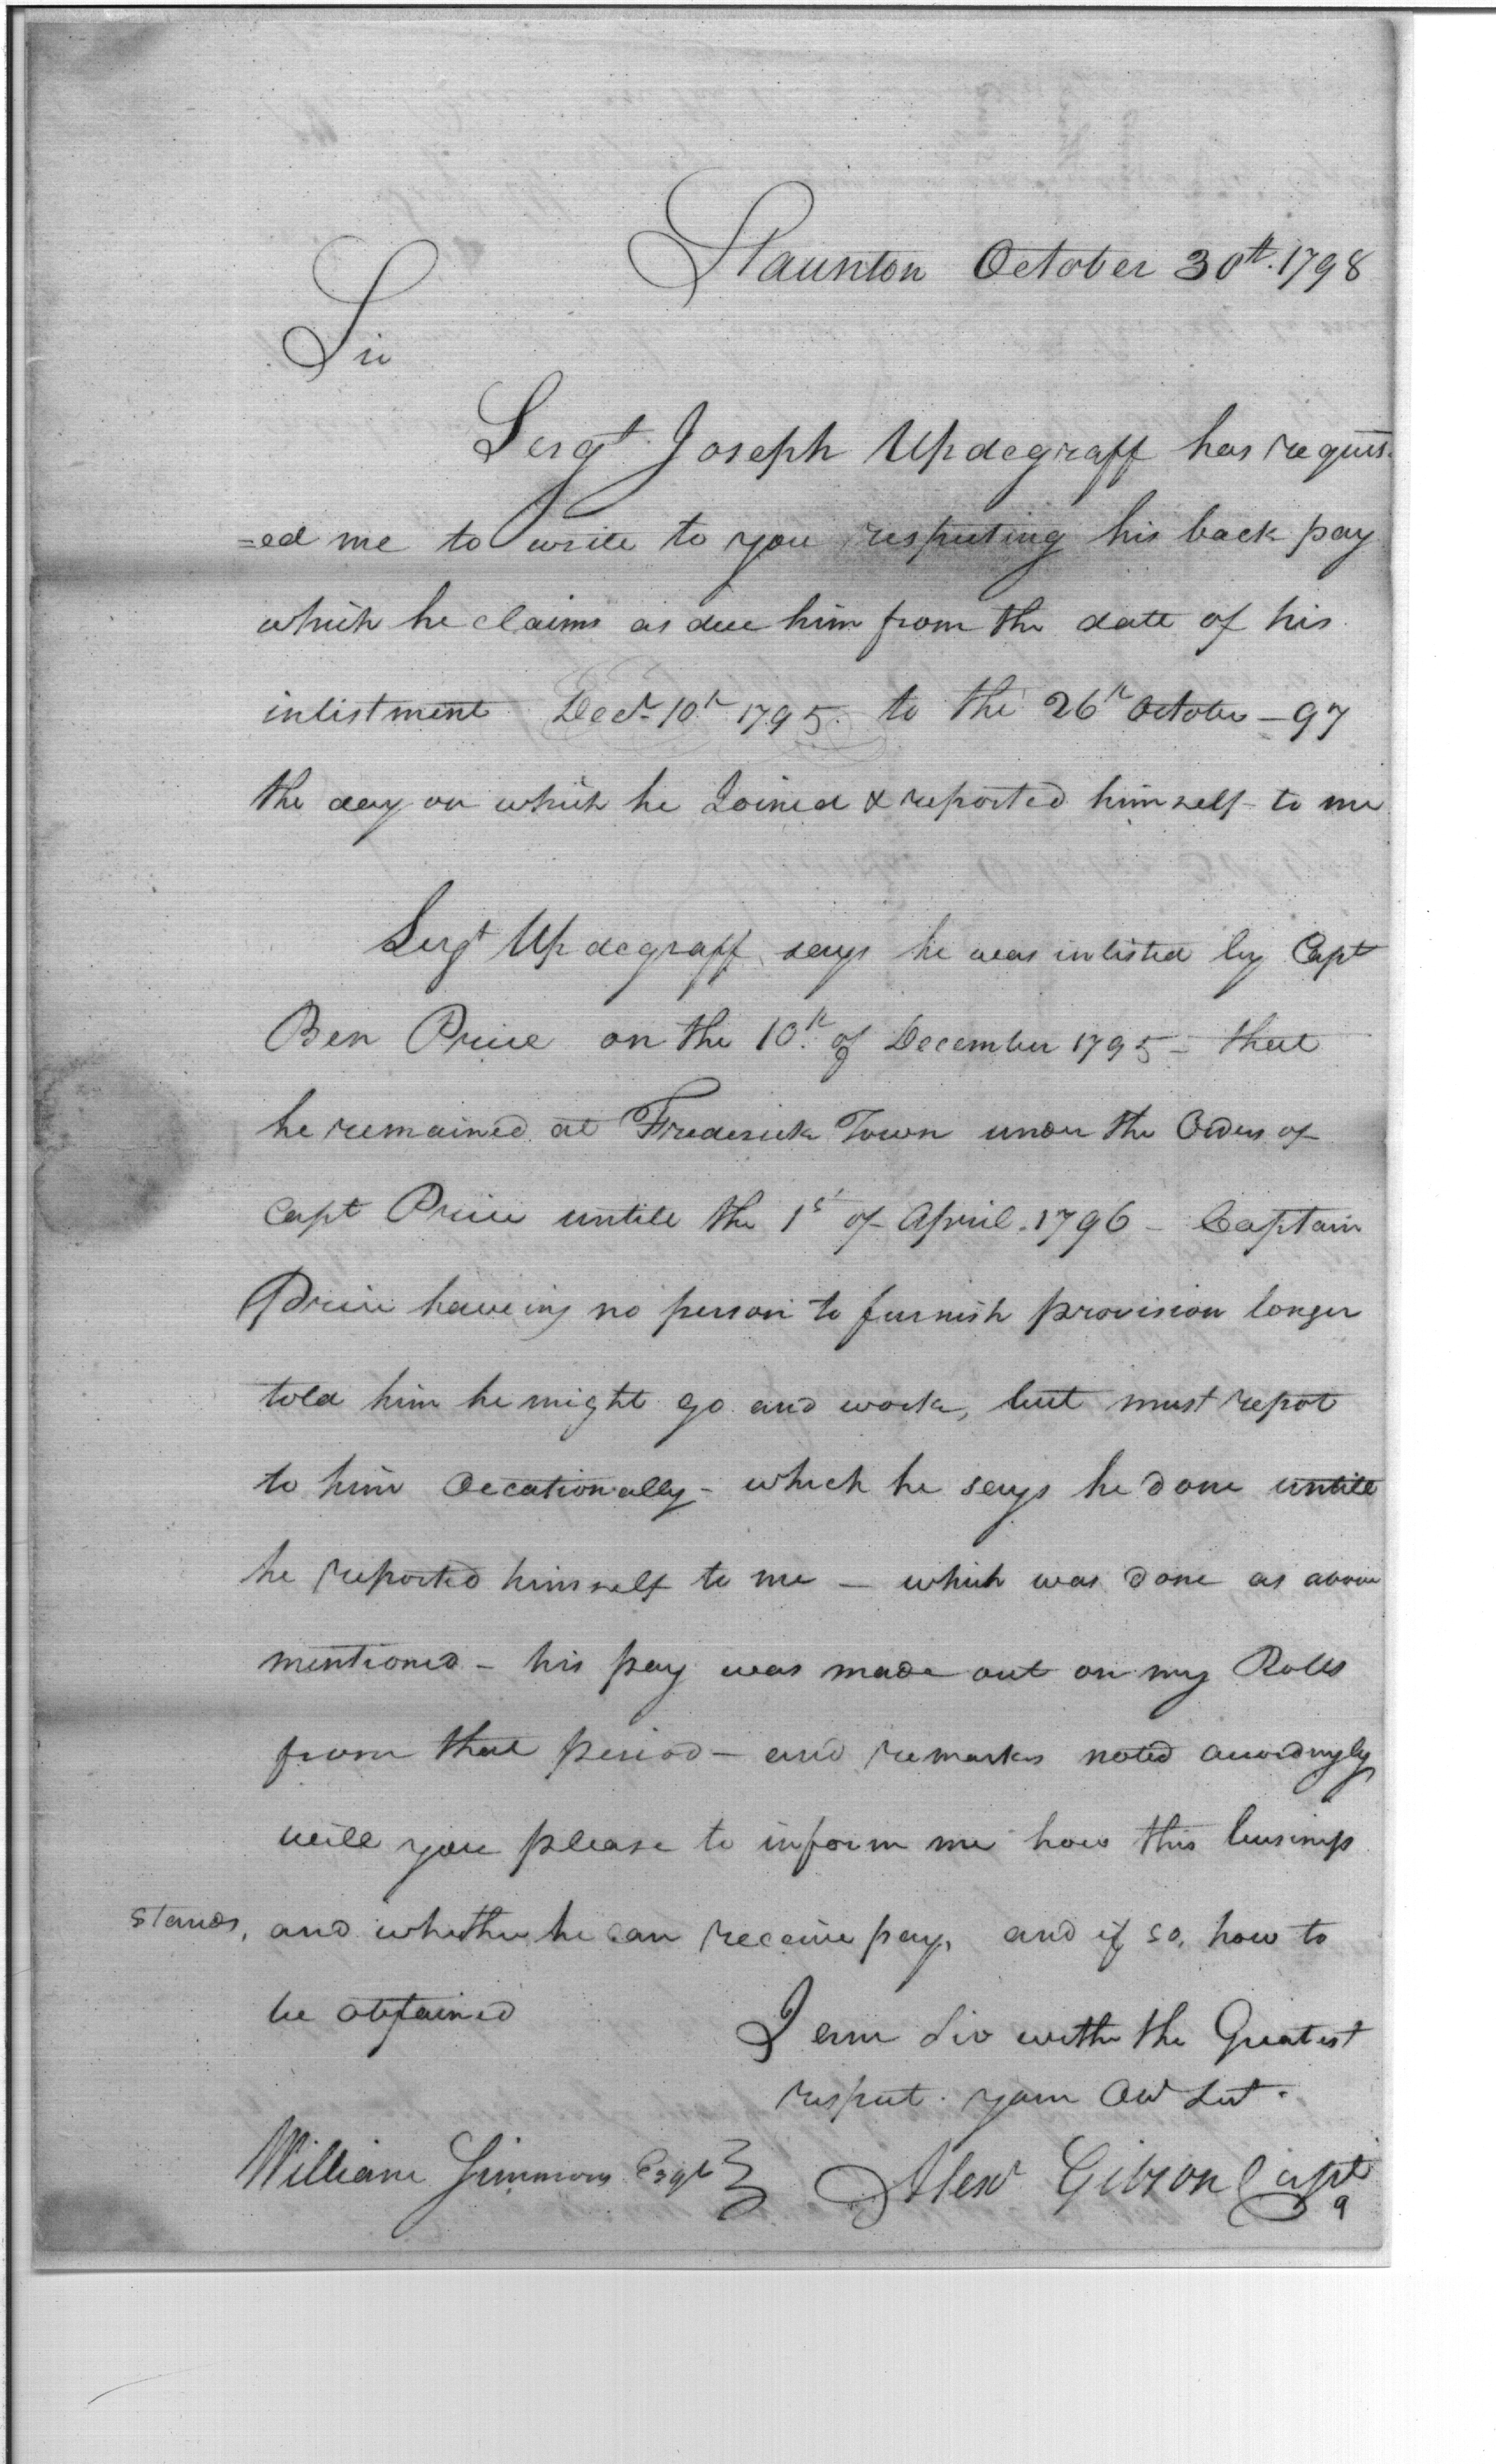 Staunton October 30th. 1798
Sir
Sergt. Joseph Updegraff has request
=ed me to write to you respecting his back pay
which he claims as due him from the date of his
inlistment Decr. 10th 1795. to the 26th October – 97
the day on which he Joined & reported himself to me
Sergt Updegraff says he was inlisted by Capt
Ben Price on the 10th. of December 1795 – that
he remained at Frederick Town under the Orders of
Capt Price untill the 1st of April. 1796 – Captain
Price haveing no person to furnish provision longer
told him he might go and work, but must repot
to him Occationally – which he says he done untill
he reported himself to me – which was done as above
mentioned – his pay was made out on my Rolls
from that period – and remarks noted accordingly
will you please to inform me how this business
stands, and whether he can receive pay, and if so, how to
be obtained
I am Sir with the Greatest
respect. your Obt Sert.
William Simmons Esqr } Alexr Gibson Capt
9